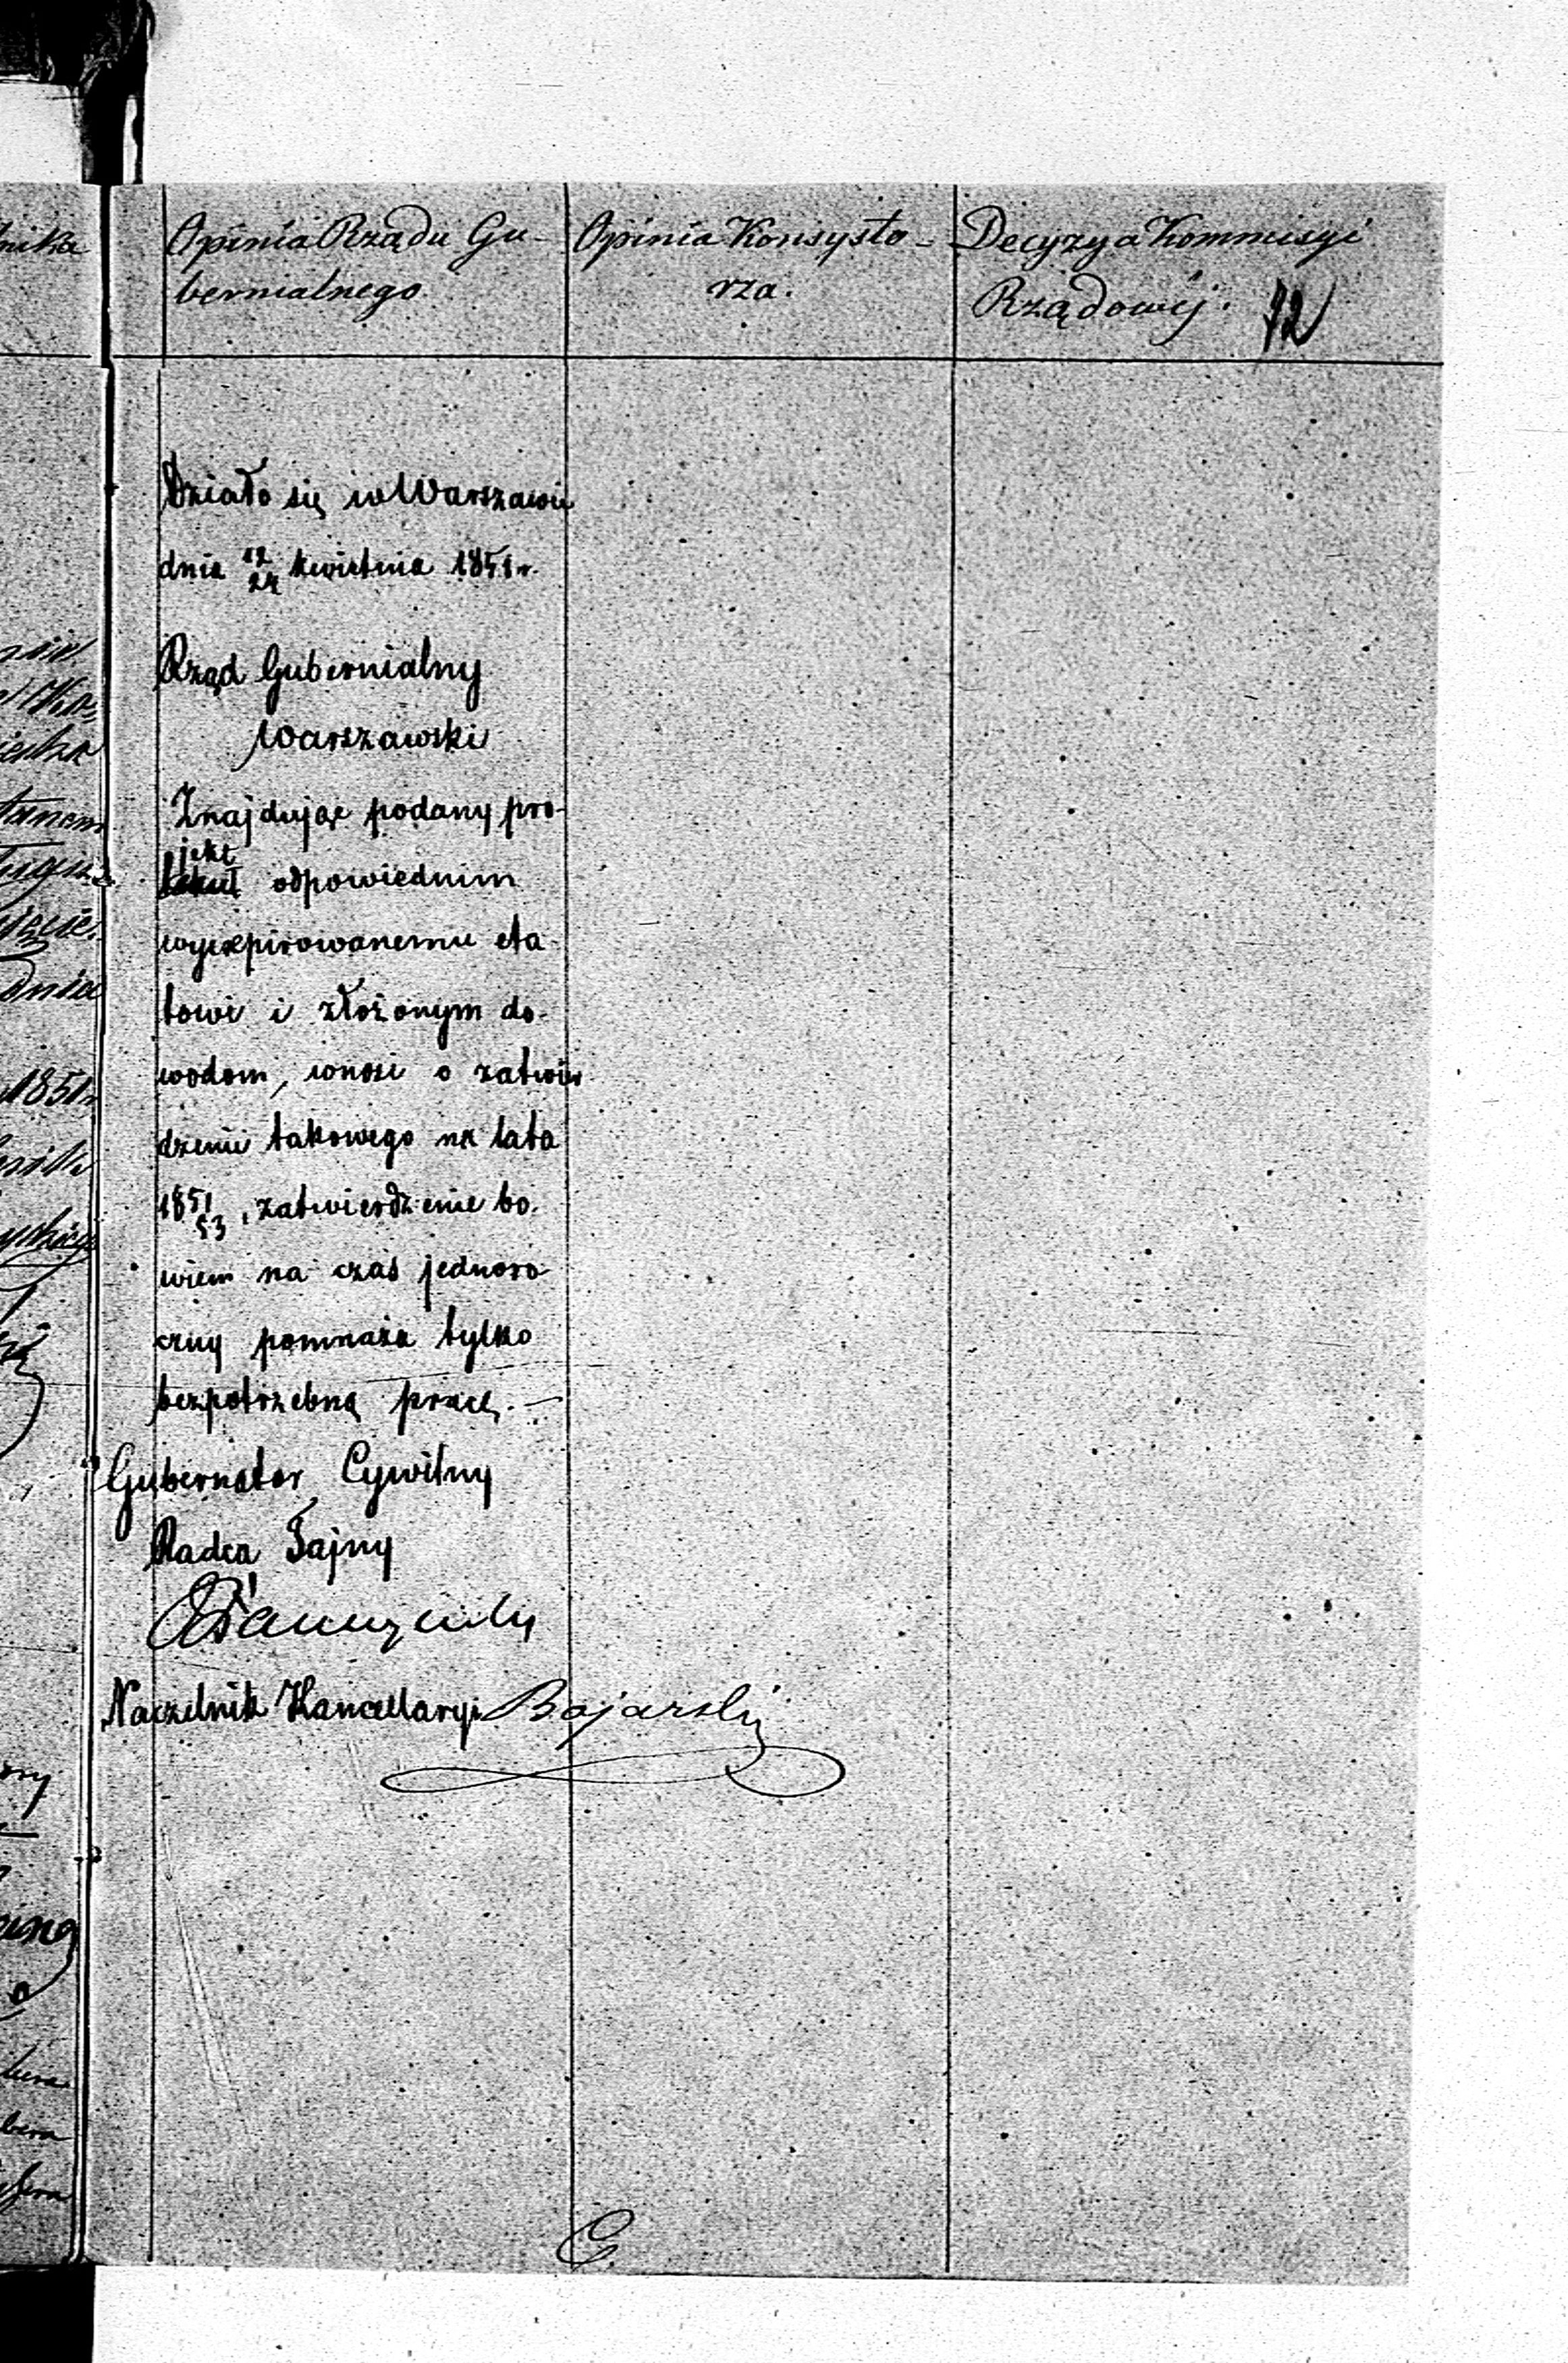 Opinia Rządu Gu-
bernialnego.
Opinia Konsysto-
rza.
Decyzya Kommisyi
Rządowéj.
72
Działo się w Warszawie
dnia 12/24 kwietnia 1851 r.
Rząd Gubernialny
Warszawski
Znajdując podany pro-
jekt odpowiednim
wyexpirowanemu eta-
towi i złożonym do-
wodom, wnosi o zatwier
dzenie takowego na lata
1851/53, zatwierdzenie bo-
wiem na czas jednoro-
czny pomnaża tylko
bezpotrzebną pracę. —
Gubernator Cywilny
Radca Tajny
Naczelnik Kancellaryi Bojarski
1851 r